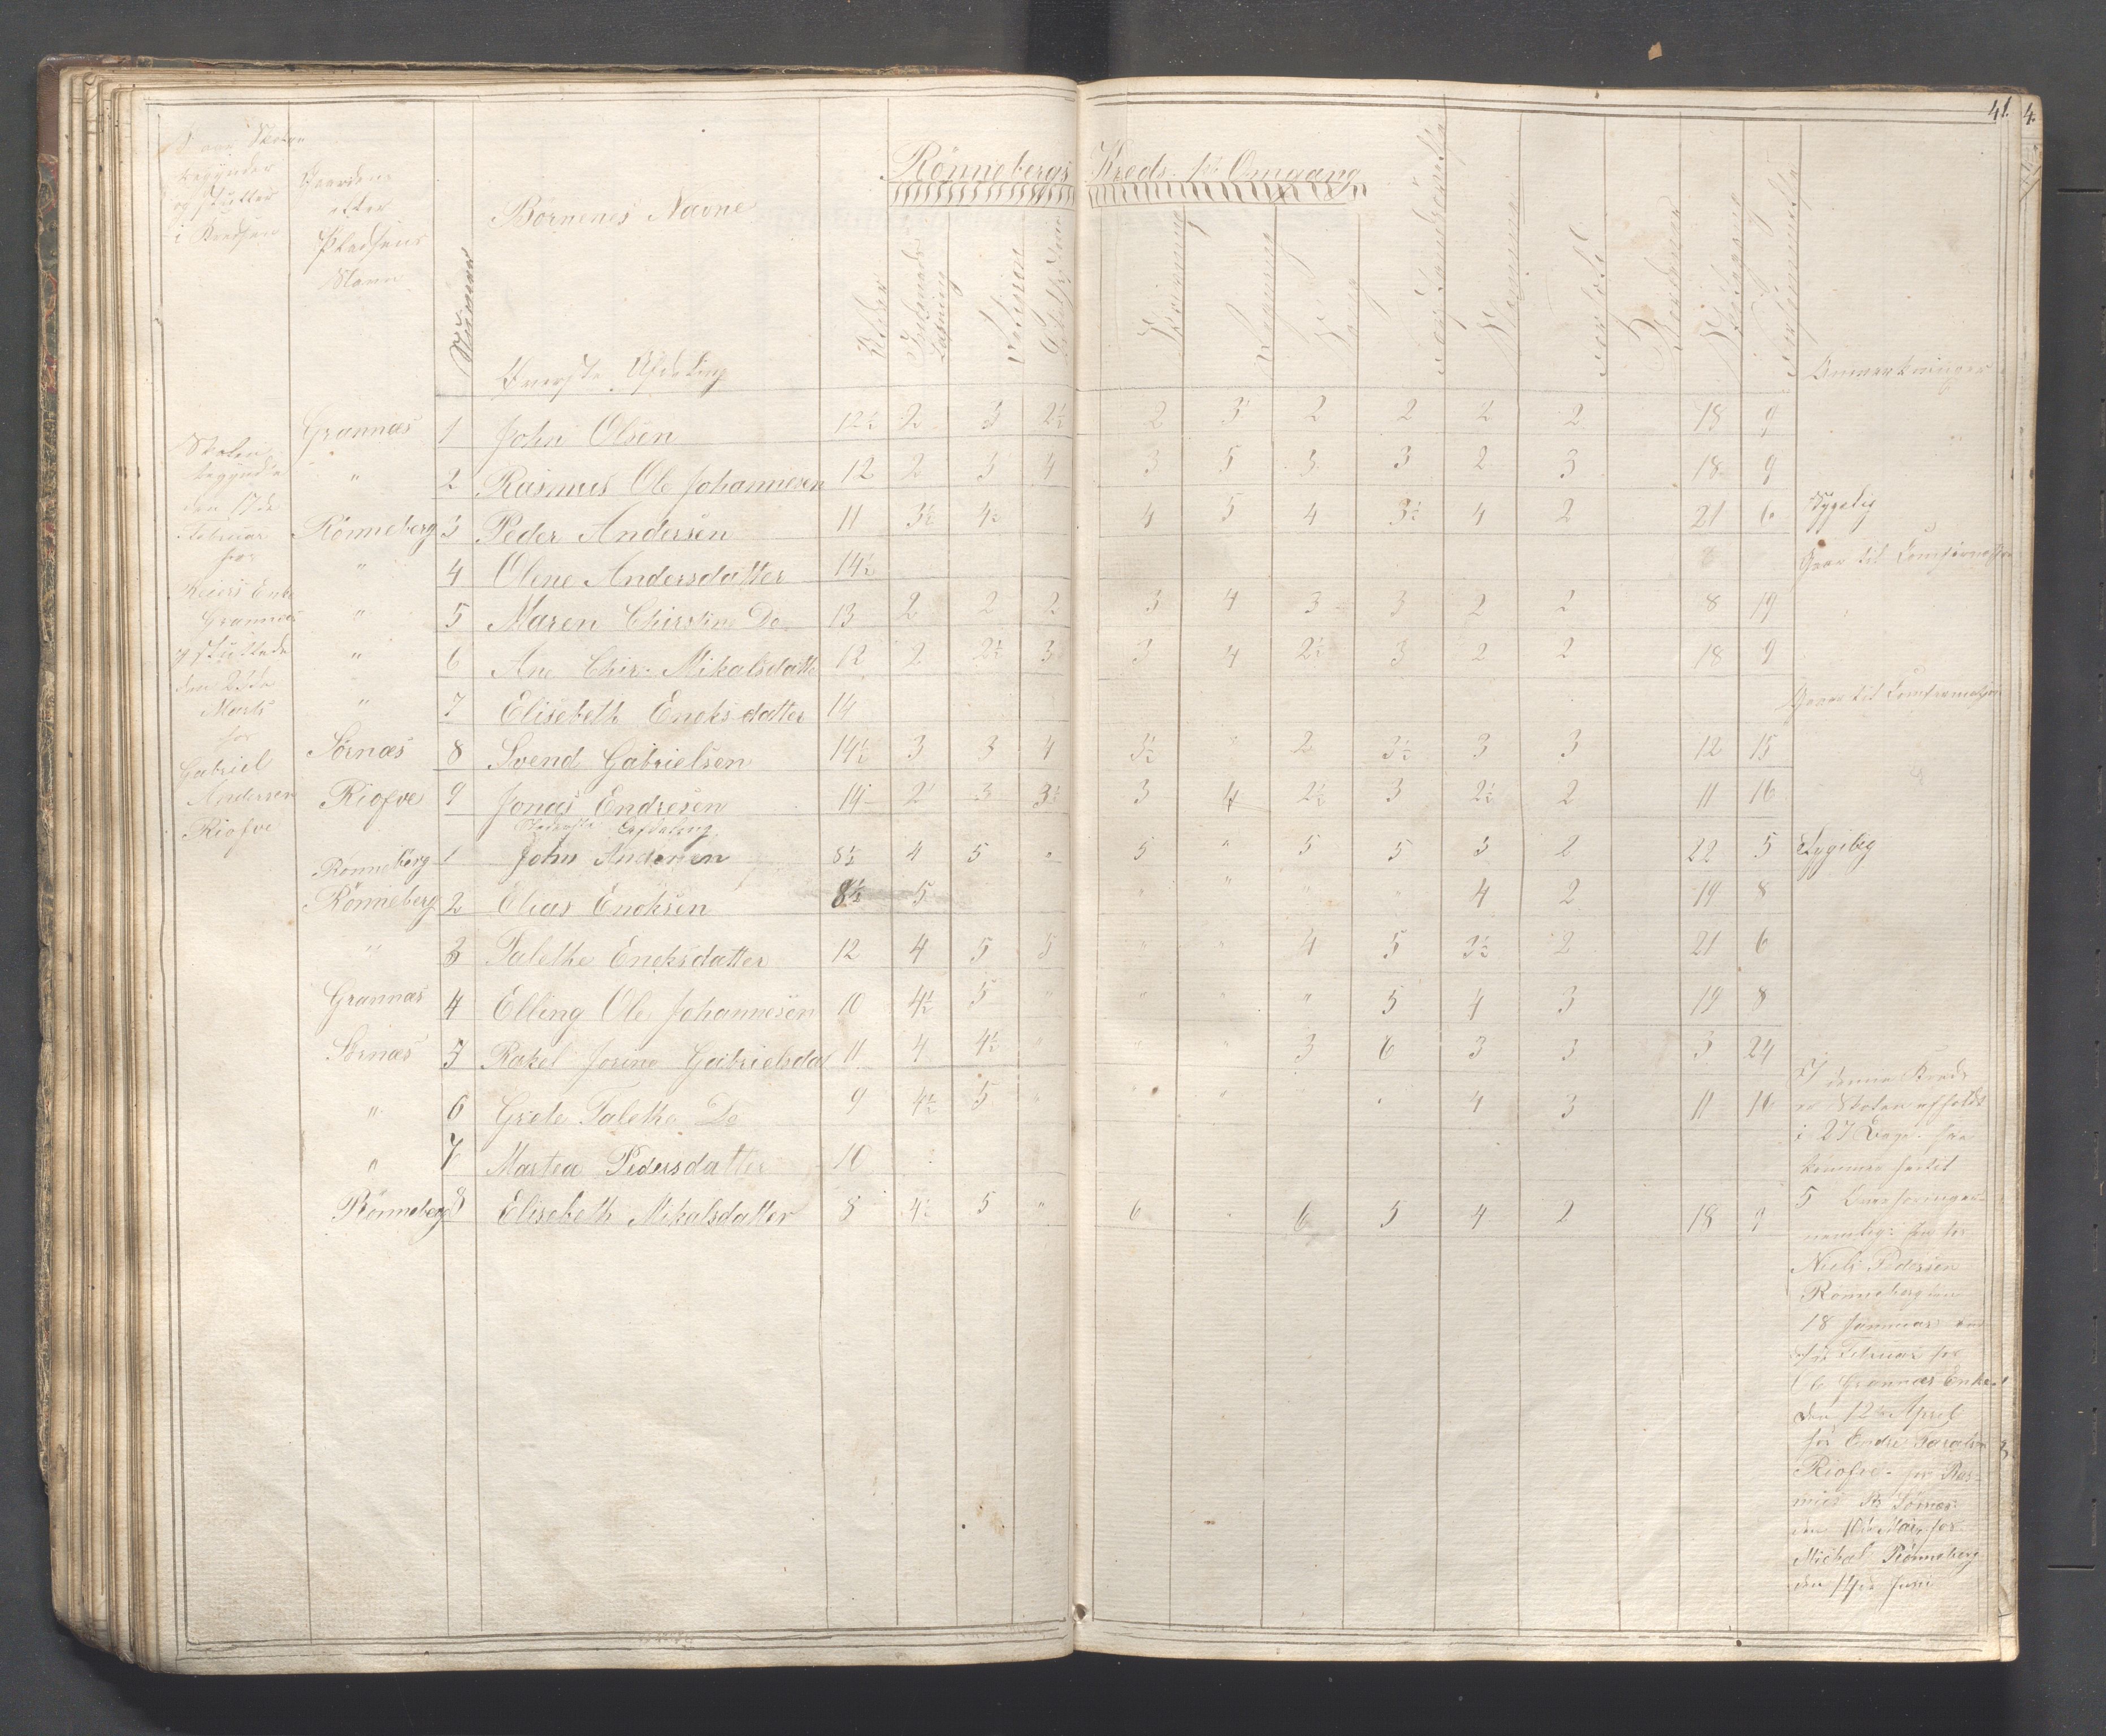 41.
Rönnebergs Kreds. 1ste Omgang
Naar Skolen
begynder
og slutter
i Kredsen
Gaardens
eller
Pladsens
Navn
Nummer
Börnenes Navne
Alder
Indenads
Læsning
Religion
Skrivning
Regning
Sang
Anmærkninger
Øverste Afdeling
Grannæs 1 John Olsen 12½ 2 3 2½ 2 3 2 2 2 2 18 9
" 2 Rasmus Ole Johannesen 12 2 3 4 3 5 3 3 2 3 18 9
Rönneberg 3 Peder Andersen 11 3½ 4½ 4 5 4 3½ 4 2 21 6 Sygelig
" 4 Olene Andersdatter 14½ Gaar til Confirmation
" 5 Maren Chirstin Do 13 2 2 2 3 4 3 3 2 2 8 19
" 6 Ane Chir: Mikalsdatter 12 2 2½ 3 3 4 2½ 3 2 2 18 9
" 7 Elisebeth Enoksdatter 14 Gaar til Confirmation
Sörnæs 8 Svend Gabrielsen 14½ 3 3 4 3½ " 2 3½ 3 3 12 15
Riofve 9 Jonas Endresen 14 2 3 3½ 3 4 2½ 3 2½ 2 11 16
Nederste Afdeling
Rönneberg 1 John Andersen 8½ 4 5 " 5 " 5 5 3 2 22 5 Sygelig
Rönneberg 2 Elias Enoksen 8½ 5 " " " " 4 2 19 8
" 3 Talethe Enoksdatter 12 4 5 5 " " 4 5 3½ 2 21 6
Grannæs 4 Elling Ole Johannesen 10 4½ 5 " " " " 5 4 3 19 8
Sörnæs 5 Rakel Josine Gabrielsdat 11 4 4½ " " " 3 6 3 3 3 24
" 6 Grete Taletha Do 9 4½ 5 " " " 4 3 11 16
" 7 Martea Pedersdatter 10
Rönneberg 8 Elisebeth Mikalsdatter 8 4½ 5 " 6 " 6 5 4 2 18 9
Skolen
begyndte
den 17de
Februar
hos
Reiers Enke
Grannæs
og sluttede
den 23de
Marts
hos
Gabriel
Andersen
Riofve
I denne Kreds
er Skolen afholdt
i 27 Dage.
5
nemlig: hos
Niels Pedersen
Rönneberg den
18 Januar
Februar hos
Ole Grannæs Enke
den 12te April
hos Endre
Riofve. hos Ras-
mus Sörnæs
den 10de Mai, hos
Mickal Rönneberg
den 14de Juni